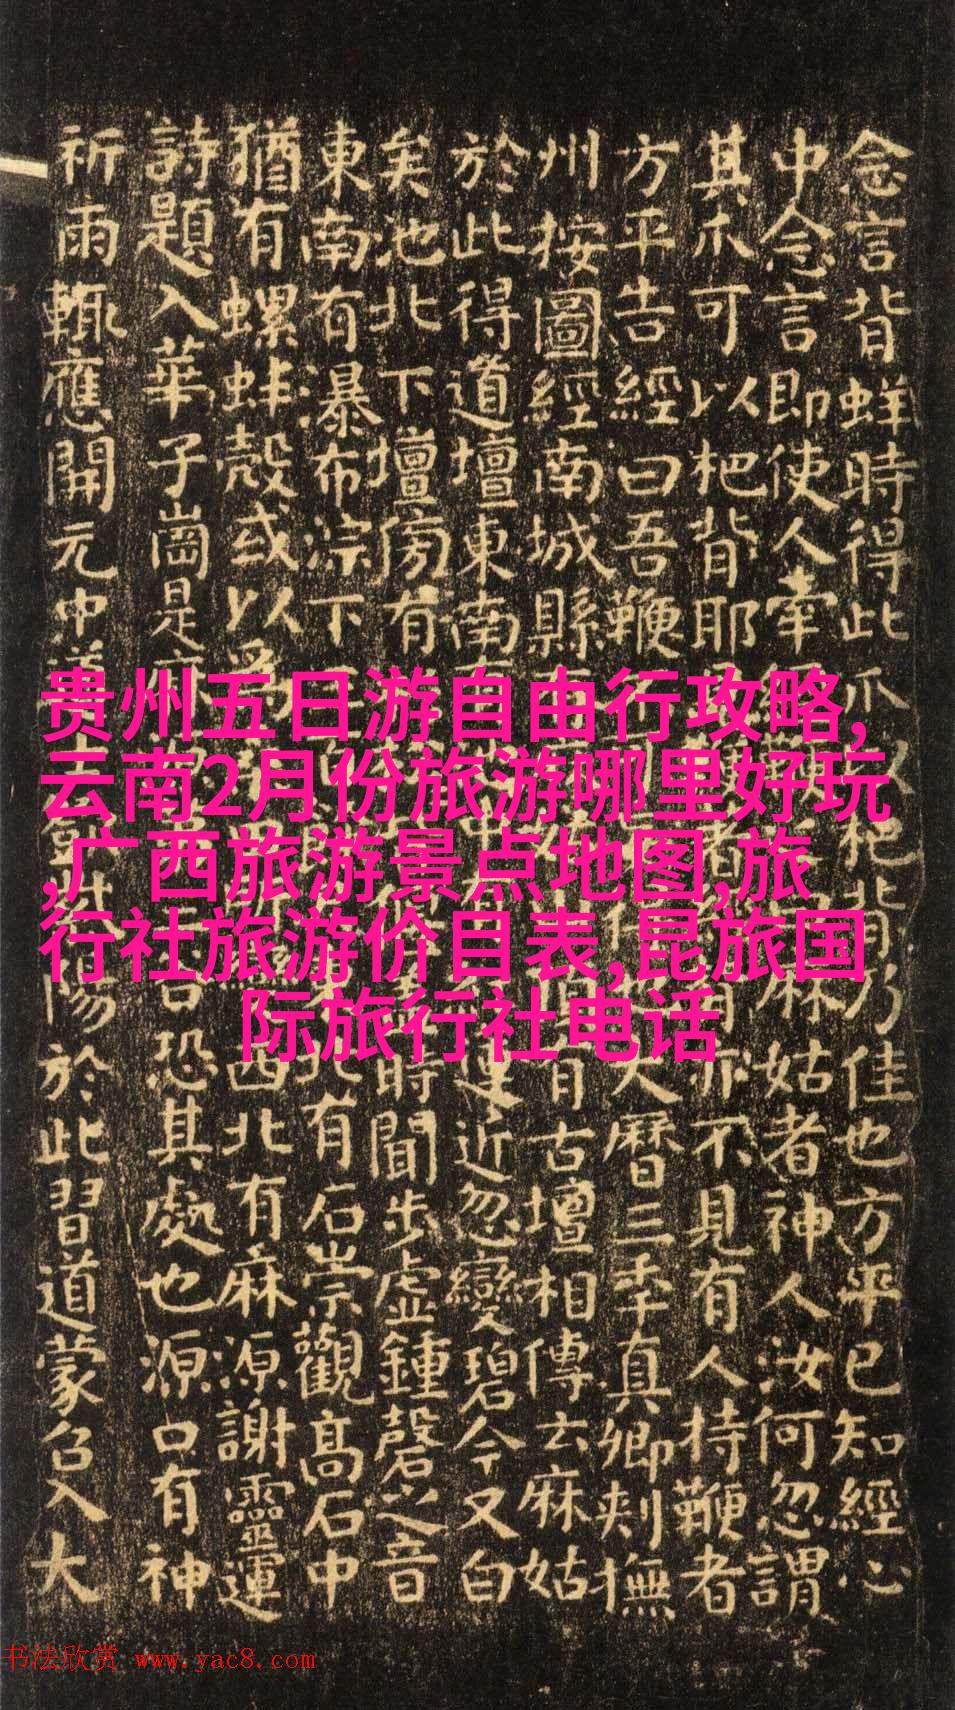 念言背蛘時得此爪以杷背乃佳也方平已知經心
中念言即使人牽麻姑者神人汝何忽謂
其爪可以杷背耶者背亦不見有人持鞭者
方平告經曰吾鞭不可大曆三年真卿刺撫
州按圖經南城縣有古壇相傳云麻姑
於此得道壇東南有池中蓮近忽變碧今又白
矣池北下壇傍有時聞步虛鍾磬之音
東南有瀑布淙下北有石崇觀高石中
猶有螺蚌殻或以為西北有麻源謝靈運
詩題入華子崗是麻谷恐其處也源口有神
祈雨輒應開元中道士鄧陽於此習道蒙召入大
贵州五日游自由行攻略,
云南2月份旅游哪里好玩
,广西旅游景点地图,旅
行社旅游价目表,昆旅国
际旅行社电话
书法欣赏 www.yac8.com